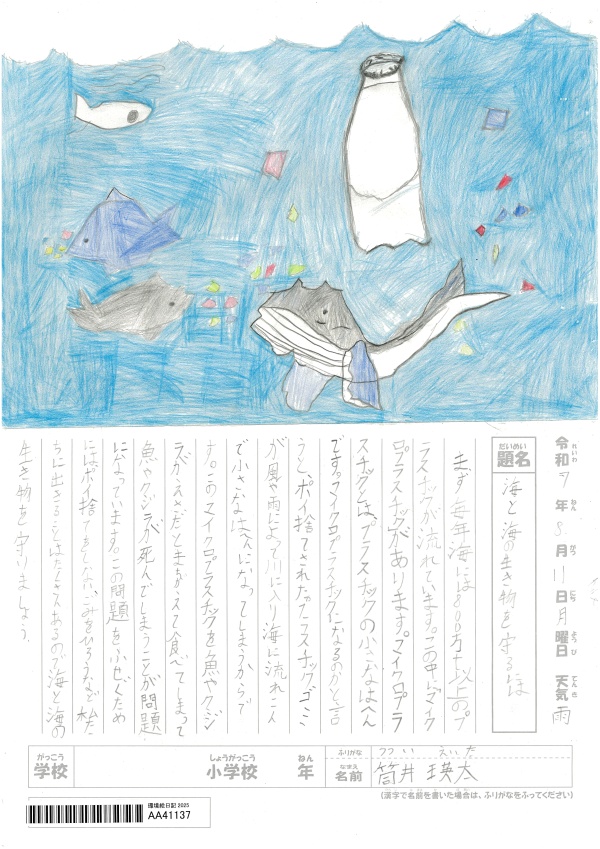 令和7年8月11日月曜日 天気 雨
れいわ ねん がつ にち ようび てんき
だいめい
題名
海と海の生き物を守るには
まず毎年海には800万t以上のプ
ラスチックが流れています。この中にマイク
ロプラスチックがあります。マイクロプラ
スチックとは、プラスチックの小さなはへん
です。マイクロプラスチックになるのかと言
うと、ポイ捨てされたプラスチックゴミ
が風や雨によって川に入り海に流れこん
で小さなはへんになってしまうからで
す。このマイクロプラスチックを魚やクジ
ラがえさだとまちがえて食べてしまって
魚やクジラが死んでしまうことが問題
になっています。この問題をふせぐため
にはポイ捨てをしない、ごみをひろうなど私た
ちに出きることはたくさんあるので海と海の
生き物を守りましょう。
がっこう
学校
しょうがっこう
小学校
ねん
年
ふりがな
つつい えいた
なまえ
名前
筒井 瑛太
(漢字で名前を書いた場合は、ふりがなをふってください)
環境絵日記 2025
AA41137